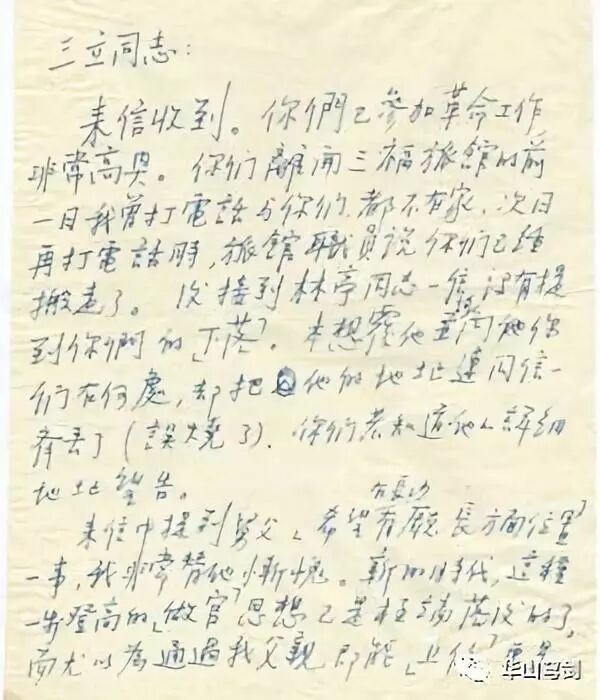 三立同志：
来信收到。你們已參加革命工作
非常高兴。你们離開三福旅館的前
一日我曾打電話与你们，都不在家，次日
再打電話時，旅館職員说你们已经
搬走了。後接到林亭同志一信，没有提
到你們的「下落」。本想複他並询他你
们在何處，却把他的地址連同信一
齊丢了（誤燒了）。你们若知道他的詳细
地址望告。
在長沙
来信中提到舅父「希望在顾長方面位置」
一事，我非常替他慚愧。新的時代，这種
一步登高的「做官」思想已是極端落後的了，
而尤以為通過我父親即能「上任」更是
华山穹剑